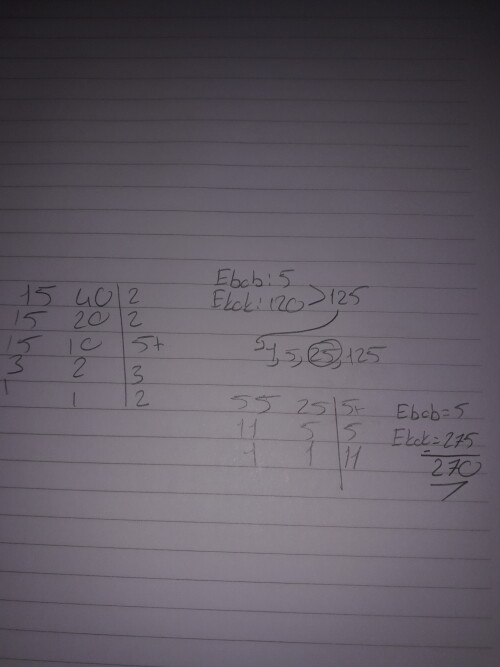 15 40 | 2
15 20 | 2
15 10 | 5+
3 2 | 3
1 1 | 2
Ebob: 5
Ekok: 120 > 125
1, 5, 25, 125
55 25 | 5+
11 5 | 5
1 1 | 11
Ebob = 5
Ekok = 275
270